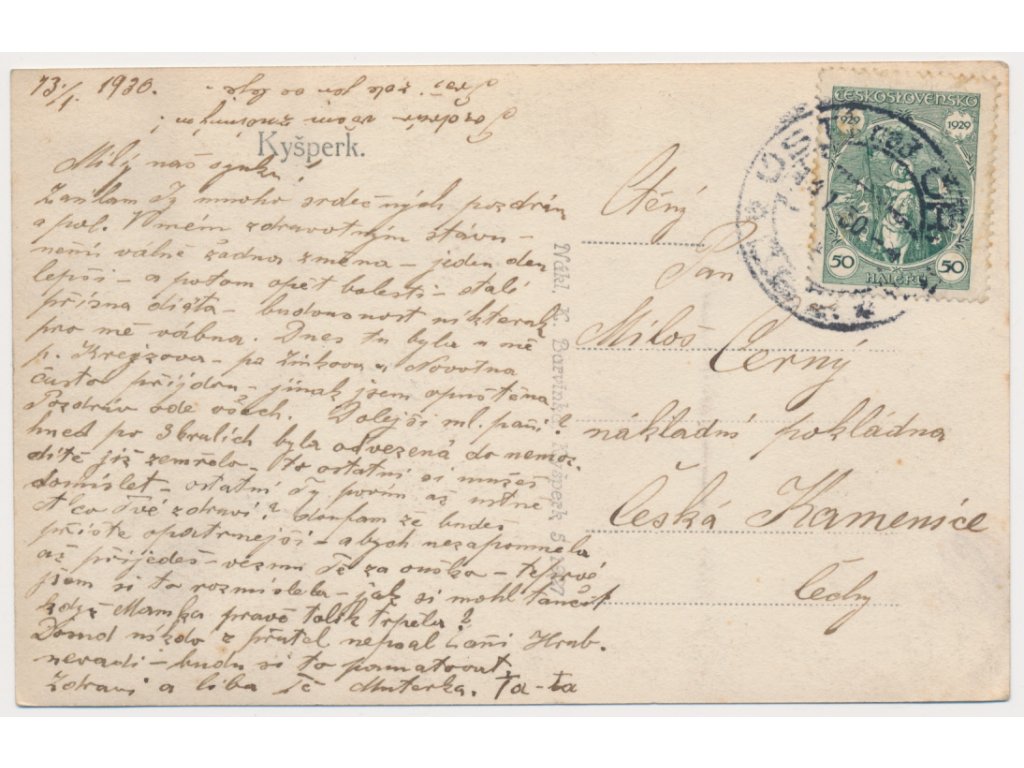 13./1. 1930.
Kyšperk.
Milý náš synku!
Zasílám Ty mnoho srdečných pozdrávů
a pol. V mém zdravotným stavu -
neñí válně žádna změna - jeden den
lepší - a potom opět bolesti - stálí
přísna diéta - budoucnost nikterak
pro mě vábna. Dnes tu byla u mě
p. Krejzova - pa Zinkova, Novotna
často příjdou - jínak jsem opuštěna
Pozdráv ode všech. Dolejší ml. paní
hned po 3 králích byla odvezená do nemoc.
dítě již zemřelo - to ostatní si mužeš
domíslet - ostatní Ty povím až ustně
A co Tvé zdraví? doufam že budeš
příště opatrnejší - abych nezapomněla
až příjedeš - vezmu Tě za ouško - teprvé
jsem si to rozmislela - jak si mohl tančít
když Mamka pravě tolik trpěla?
Domů nikdo z přatel nepsal ani Hrab.
nevadí - budu si to pamatovat,
Zdraví a líba Tě Muterka. Ta-ta
Nákl. K. Barvínka, Kyšperk
Ctěný
Pan
Miloš Černý
nákladní pokládna
Česká Kamenice
Čechy
ČESKOSLOVENSKO
1929 1929
50 HALÉŘŮ 50